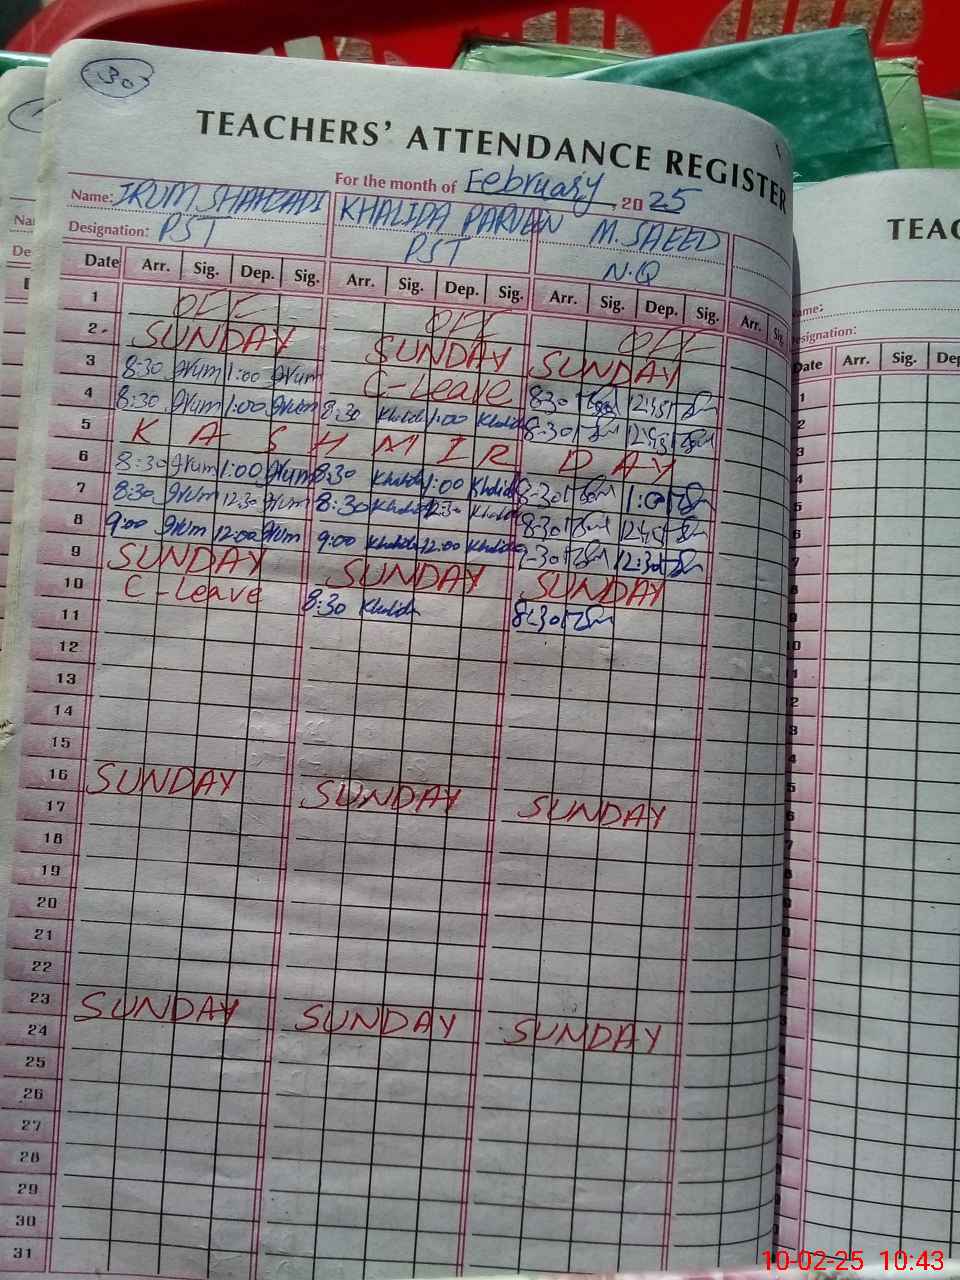 30
TEACHERS' ATTENDANCE REGISTER
For the month of February, 2025
Name: IRUM SHAHZADI KHALIDA PARVEEN M. SAEED
Designation: PST PST N.Q
Date Arr. Sig. Dep. Sig. Arr. Sig. Dep. Sig. Arr. Sig. Dep. Sig. Arr. Sig.
1 OFF OFF OFF
2 SUNDAY SUNDAY SUNDAY
3 8:30 Irum 1:00 Irum C-Leave 8:30 12:45
4 8:30 Irum 1:00 Irum 8:30 Khalida 1:00 Khalida 8:30 12:45
5 K A S H M I R D A Y
6 8:30 Irum 1:00 Irum 8:30 Khalida 1:00 Khalida 8:30 1:00
7 8:30 Irum 12:30 Irum 8:30 Khalida 12:30 Khalida 8:30 12:45
8 9:00 Irum 12:00 Irum 9:00 Khalida 12:00 Khalida 12:30
9 SUNDAY SUNDAY SUNDAY
10 C-Leave 8:30 Khalida 8:30
11
12
13
14
15
16 SUNDAY SUNDAY SUNDAY
17
18
19
20
21
22
23 SUNDAY SUNDAY SUNDAY
24
25
26
27
28
29
30
31
TEAC
Name:
Designation:
Date Arr. Sig. Dep
10-02-25 10:43